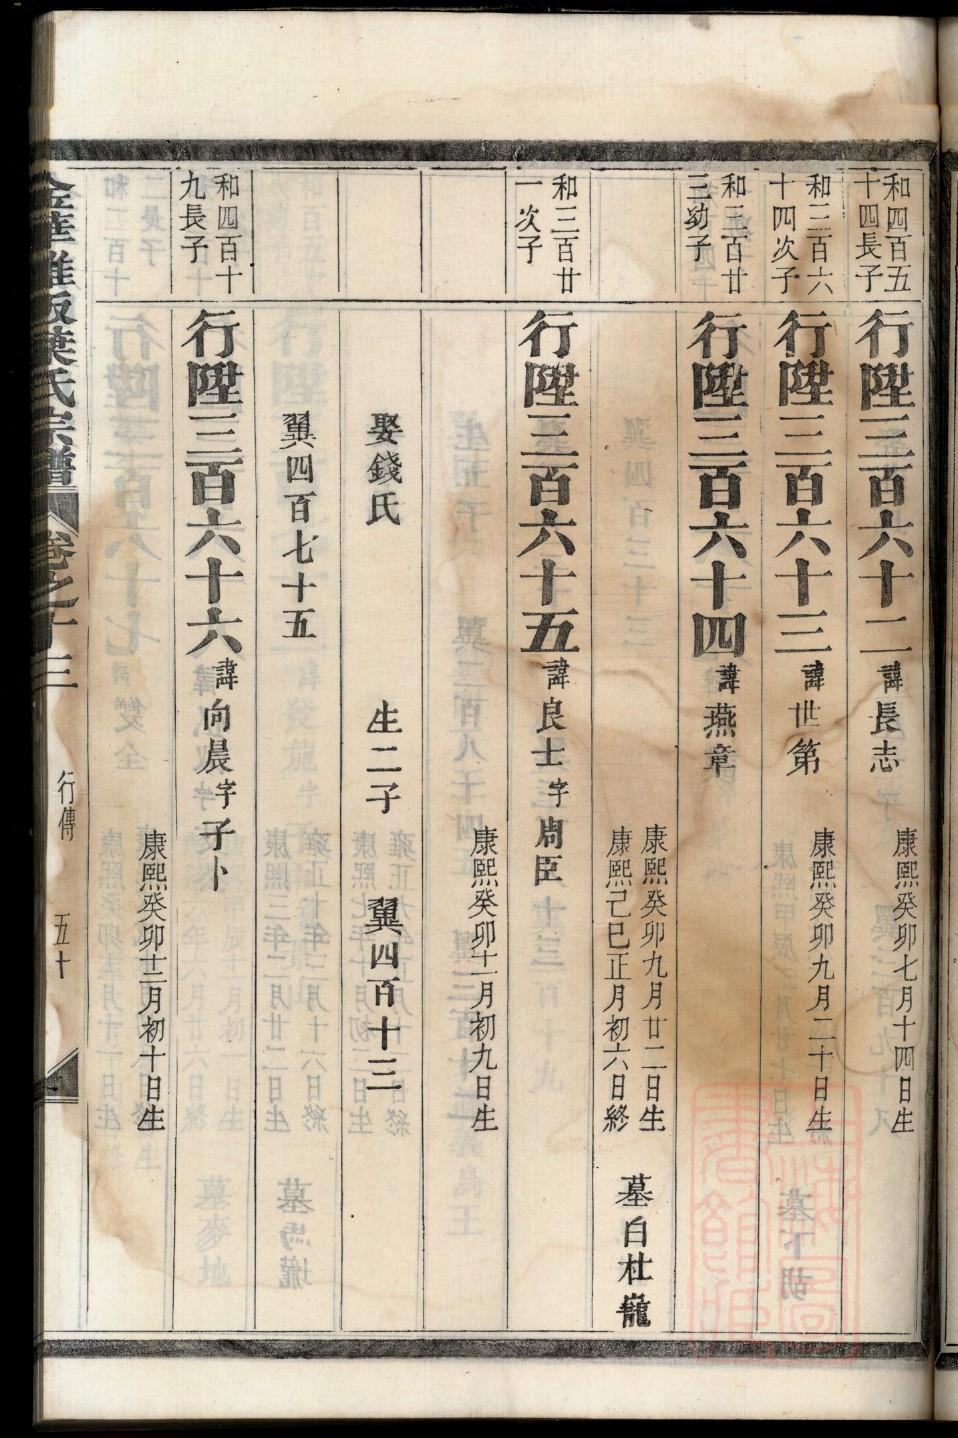 和四百五
十四長子
行陞三百六十二諱長志
康熙癸卯七月十四日生
和三百六
十四次子
行陞三百六十三諱世第
康熙癸卯九月二十日生
和三百廿
三幼子
行陞三百六十四諱燕章
康熙癸卯九月廿二日生
康熙己巳正月初六日終
墓白杜巃
和三百廿
一次子
行陞三百六十五諱良士字周臣
康熙癸卯十一月初九日生
娶錢氏
生二子
翼四百十三
翼四百七十五
和四百十
九長子
行陞三百六十六諱向晨字子卜
康熙癸卯十二月初十日生
金華 葉氏宗譜
卷之十三
行傳
五十